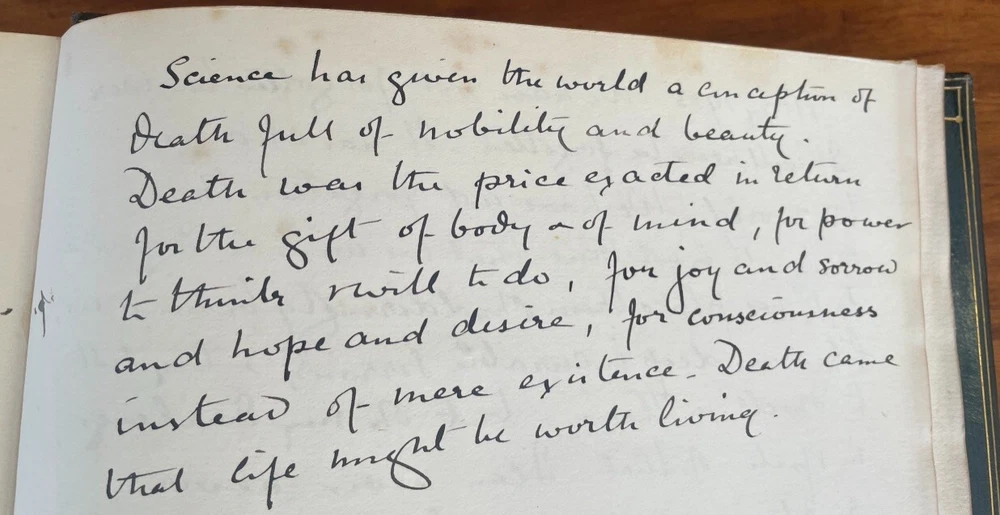 Science has given the world a conception of
Death full of nobility and beauty.
Death was the price exacted in return
for the gift of body & of mind, for power
to think & will to do, for joy and sorrow
and hope and desire, for consciousness
instead of mere existence. Death came
that life might be worth living.